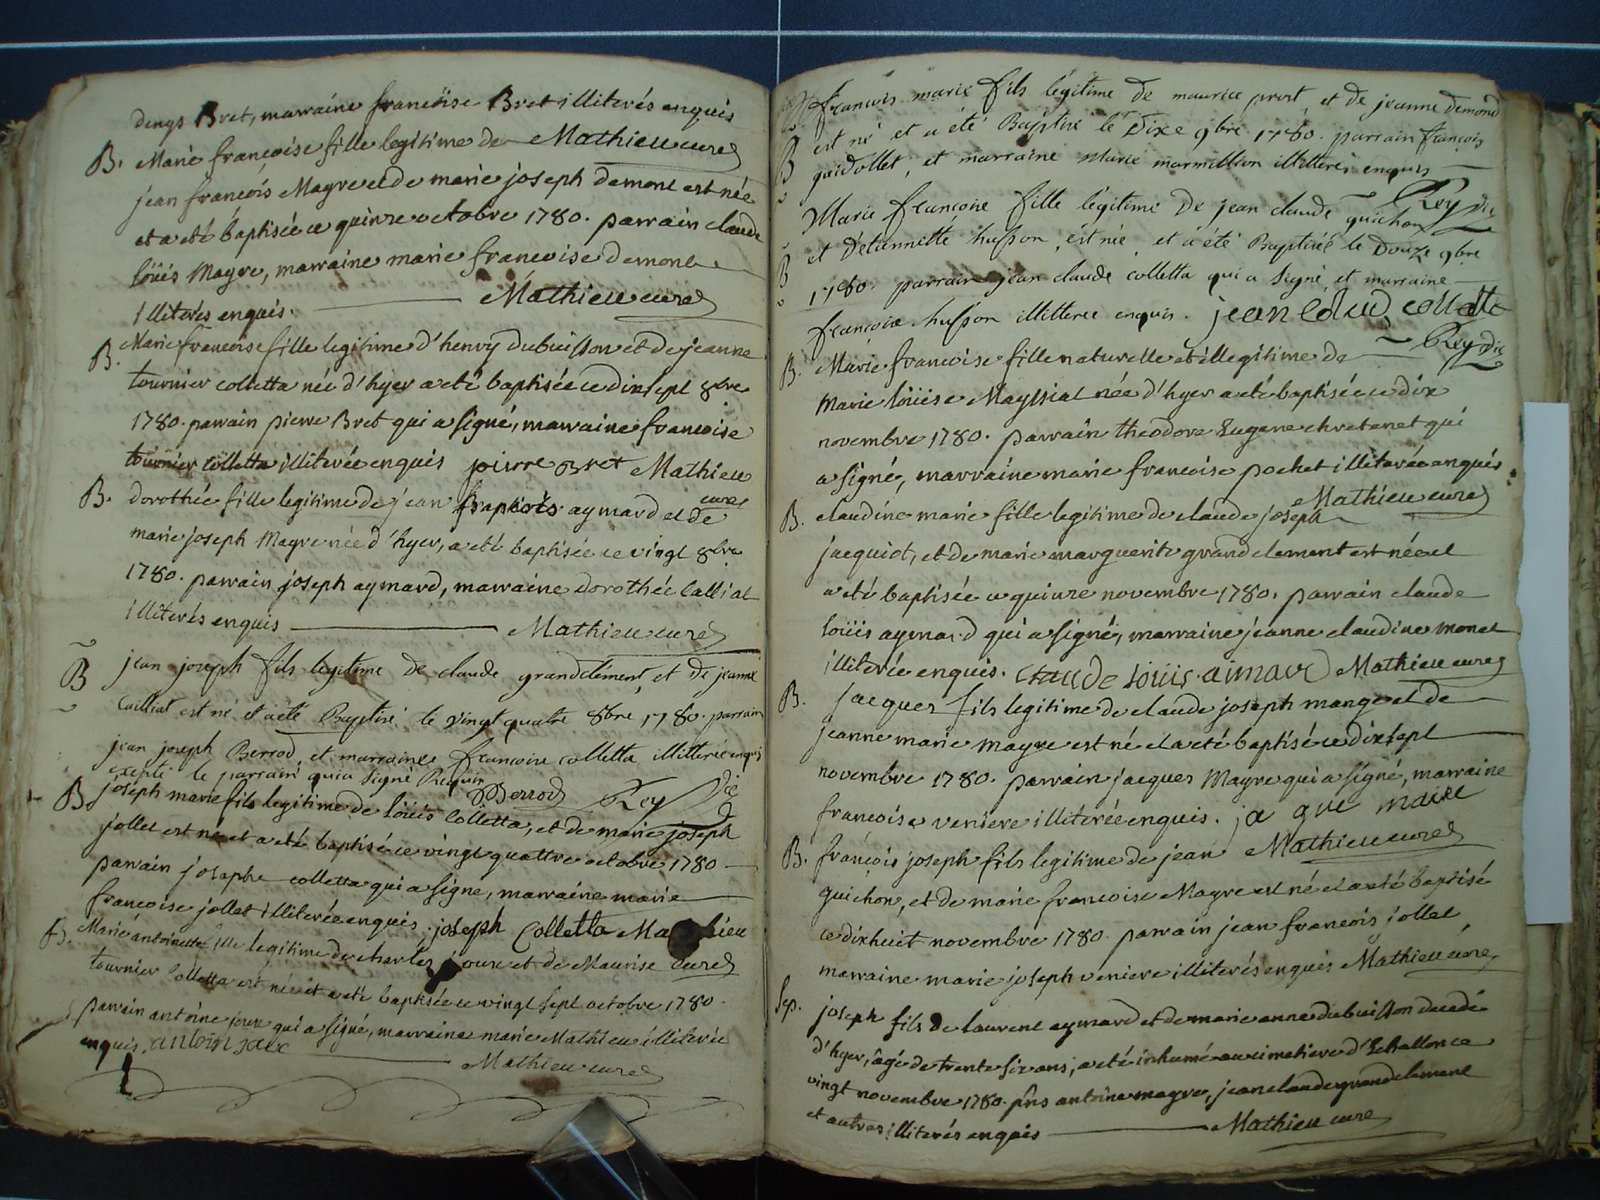 denys Bret, marraine francoise Bret illiterés enquis
B. Marie françoise fille legitime de Mathieu curé
jean francois Mayre et de marie joseph demont est née
et a eté baptisée ce quinze octobre 1780. parrain claude
loüis Mayre, marraine marie francoise demont
illiterés enquis. Mathieu curé
B. Marie francoise fille legitime d'henry dubuisson et de jeanne
tournier colletta née d'hyer a eté baptisée ce dixsept 8bre
1780. parrain pierre Bret qui a signé, marraine francoise
tournier colletta illiterée enquis pierre Bret Mathieu
curé
B. dorothée fille legitime de jean francois aymard et de
marie joseph Mayre née d'hyer, a eté baptisée ce vingt 8bre
1780. parrain joseph aymard, marraine dorothée Calliat
illiterés enquis Mathieu curé
B jean joseph fils legitime de claude grandclément et de jeanne
Cailliat est né et a eté Baptisé le vingt quatre 8bre 1780. parrain
jean joseph Berrod, et marraine francoise colletta illitterée enquis
excepté le parrain qui a signé Requis JJBerrod Rey Vic
B joseph marie fils legitime de loüis Colletta, et de marie joseph
jollet est né et a eté baptisé ce vingt quattre octobre 1780
parrain josephe colletta qui a signe, marraine marie
francoise jollet illiterée enquis. joseph Colletta Mathieu
B. Marie antoinette fille legitime de charles joux et de Maurise curé
tournier Colletta est née et a eté baptisée ce vingt sept octobre 1780.
parrain antoine joux qui a signé, marraine marie Mathieu illiterée
enquis. antoin joux Mathieu curé
francois marie fils légitime de maurice prost, et de jeanne demond
est né et a été Baptisé le Dixe 9bre 1780. parrain françois
B gaidollet, et marraine Marie marmillion illitterés enquis
Rey Vic
Marie francoise fille légitime De jean claude guichon
et D'etiennette husson, est née et a été Baptisée le Douze 9bre
B 1780. parrain jean claude colletta qui a signé, et marraine
francoise husson illitterée enquis. jean claud colletta
Rey Vic
B. Marie francoise fille naturelle et illegitime de
Marie loüise Mayssiat née d'hyer a eté baptisée ce dix
novembre 1780. parrain theodore Eugene chretenet qui
a signé, marraine marie francoise pochet illiterée enquis
Mathieu curé
B. claudine marie fille legitime de claude joseph
jacquiot, et de marie marguerite grandclement est née et
a eté baptisée ce quinze novembre 1780. parrain claude
loüis aymard qui a signé, marraine jeanne claudine monet
illiterée enquis. claude loüis aimard Mathieu curé
B. jacques fils legitime de claude joseph mange et de
jeanne marie mayre est né et a eté baptisé ce dixsept
novembre 1780. parrain jacques Mayre qui a signé, marraine
francoise veniere illiterée enquis. ja que maire
B. françois joseph fils legitime de jean Mathieu curé
guichon, et de marie francoise Mayre est né et a eté baptisé
ce dixhuit novembre 1780. parrain jean francois jollet
marraine marie joseph veniere illiterés enquis Mathieu curé
Sep. joseph fils de laurent aymard et de marie anne dubuisson decedé
d'hyer, âgé de trente six ans, a eté inhumé au cimetiere d'Echallon ce
vingt novembre 1780. pñs antoine mayre, jean claude grandclement
et autres illiterés enquis Mathieu curé